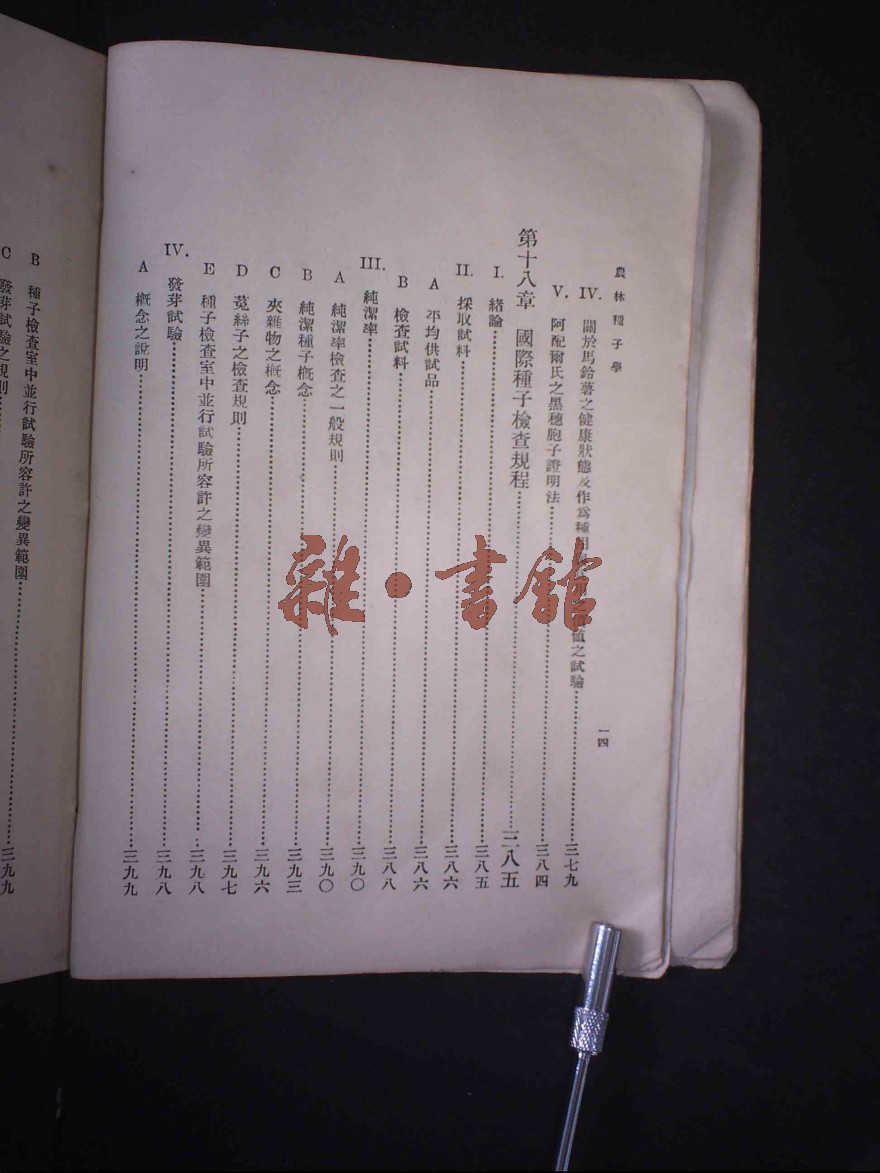 農林種子學
一四
IV. 關於馬鈴薯之健康狀態及作爲種用 價值之試驗……三七九
V. 阿配爾氏之黑穗胞子證明法……三八四
第十八章 國際種子檢查規程……三八五
I. 緒論……三八五
II. 採取試料……三八六
A 平均供試品……三八六
B 檢查試料……三八八
III. 純潔率……三九〇
A 純潔率檢查之一般規則……三九〇
B 純潔種子概念……三九三
C 夾雜物之概念……三九六
D 菟絲子之檢查規則……三九七
E 種子檢查室中並行試驗所容許之變異範圍……三九八
IV. 發芽試驗……三九八
A 概念之說明……三九九
B 種子檢查室中並行試驗所容許之變異範圍
C 發芽試驗之規則……三九九
雜·書館